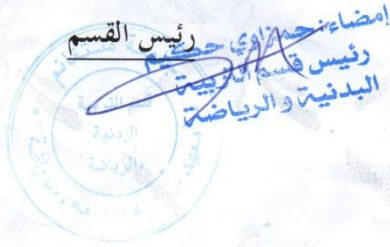 رئيس القسم
إمضاء: حمزاوي حكيم
رئيس قسم التربية
البدنية و الرياضة
قسم التربية
البدنية
والرياضة